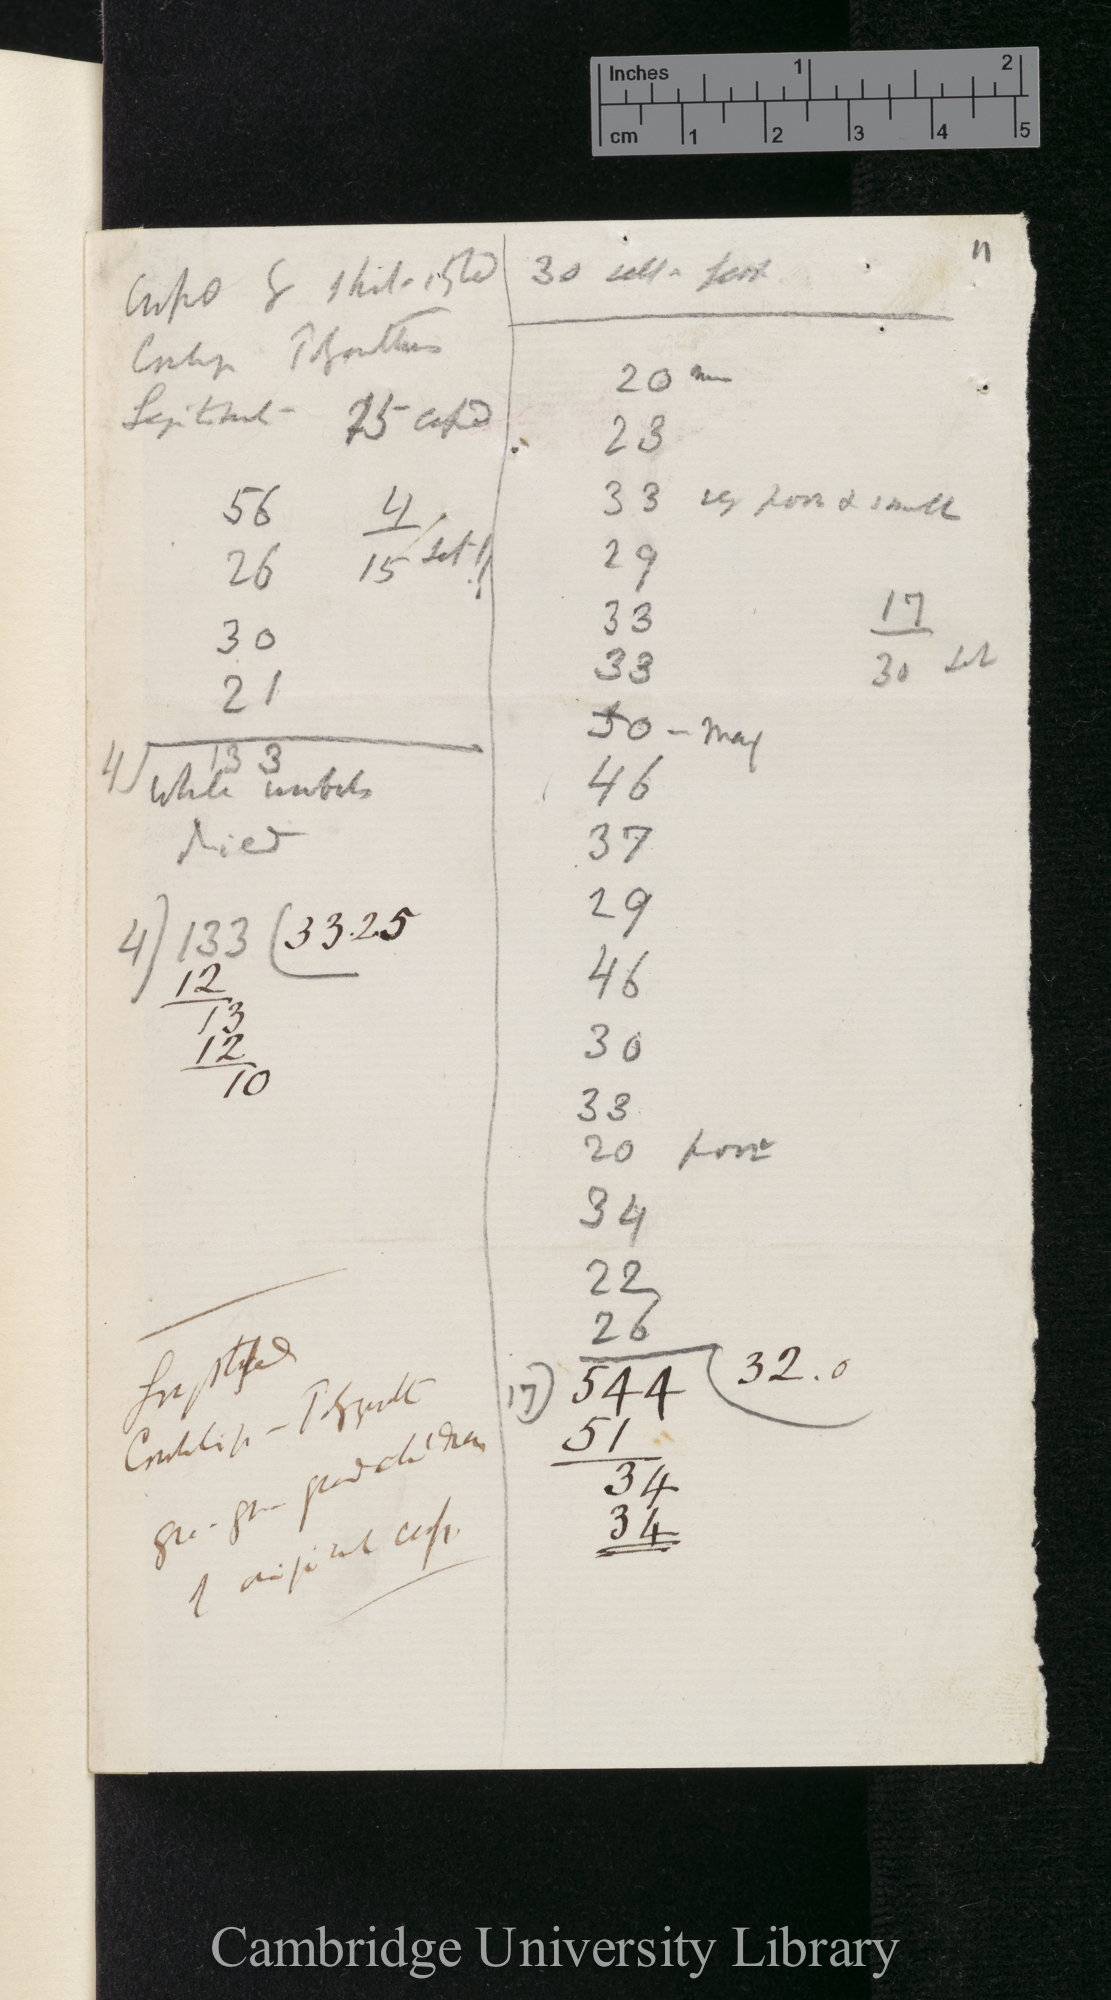 Inches 1 2
cm 1 2 3 4 5
n
of
Cowslip Polyanthus
15 capsd
56
26
30
21
4/15 set !!
4) 133
Whole umbels
died
4) 133 (33.25
12
13
12
10
Cowslip - Polyanth
gr - gr - grandchildren
of original cowslip
30 self - fert
20
23
33 very poor & small
29
33
33
50 - Many
46
37
29
46
30
33
20 poor
34
22
26
17) 544 (32.0
51
34
34
17/30 set
Cambridge University Library